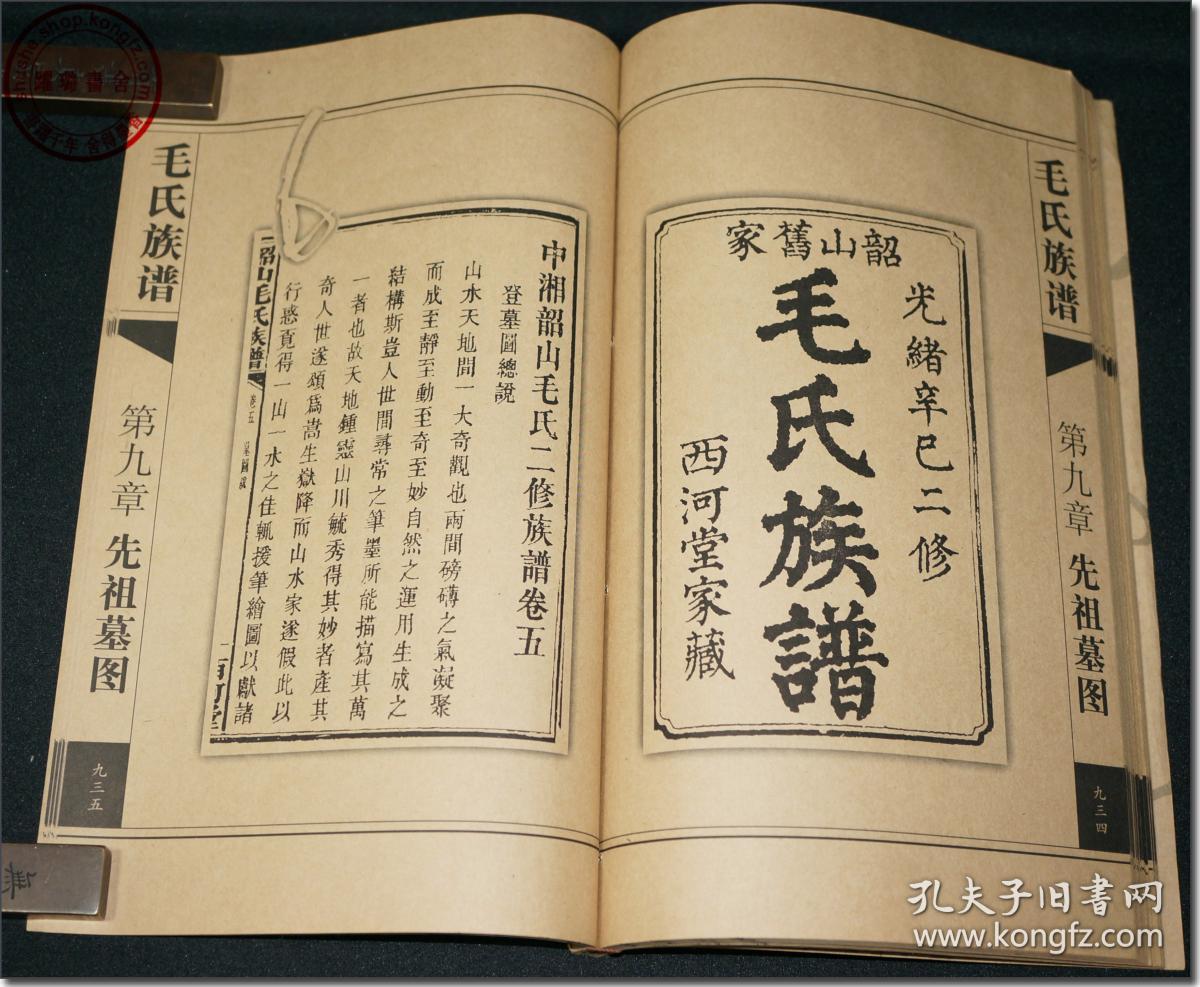 毛氏族谱
第九章 先祖墓图
九三四
韶山舊家
光緒辛巳二修
毛氏族譜
西河堂家藏
中湘韶山毛氏二修族譜卷五
登墓圖總說
山水天地間一大奇觀也兩間磅礴之氣凝聚
而成至靜至動至奇至妙自然之運用生成之
結構斯豈人世間尋常之筆墨所能描寫其萬
一者也故天地鍾靈山川毓秀得其妙者產其
奇人世遂頌爲嵩生嶽降而山水家遂假此以
行惑覓得一山一水之佳輒援筆繪圖以獻諸
韶山毛氏族譜
卷五
墓圖說
毛氏族谱
第九章 先祖墓图
九三五
shushe.shop.kongfz.com
孔夫子旧书网
www.kongfz.com